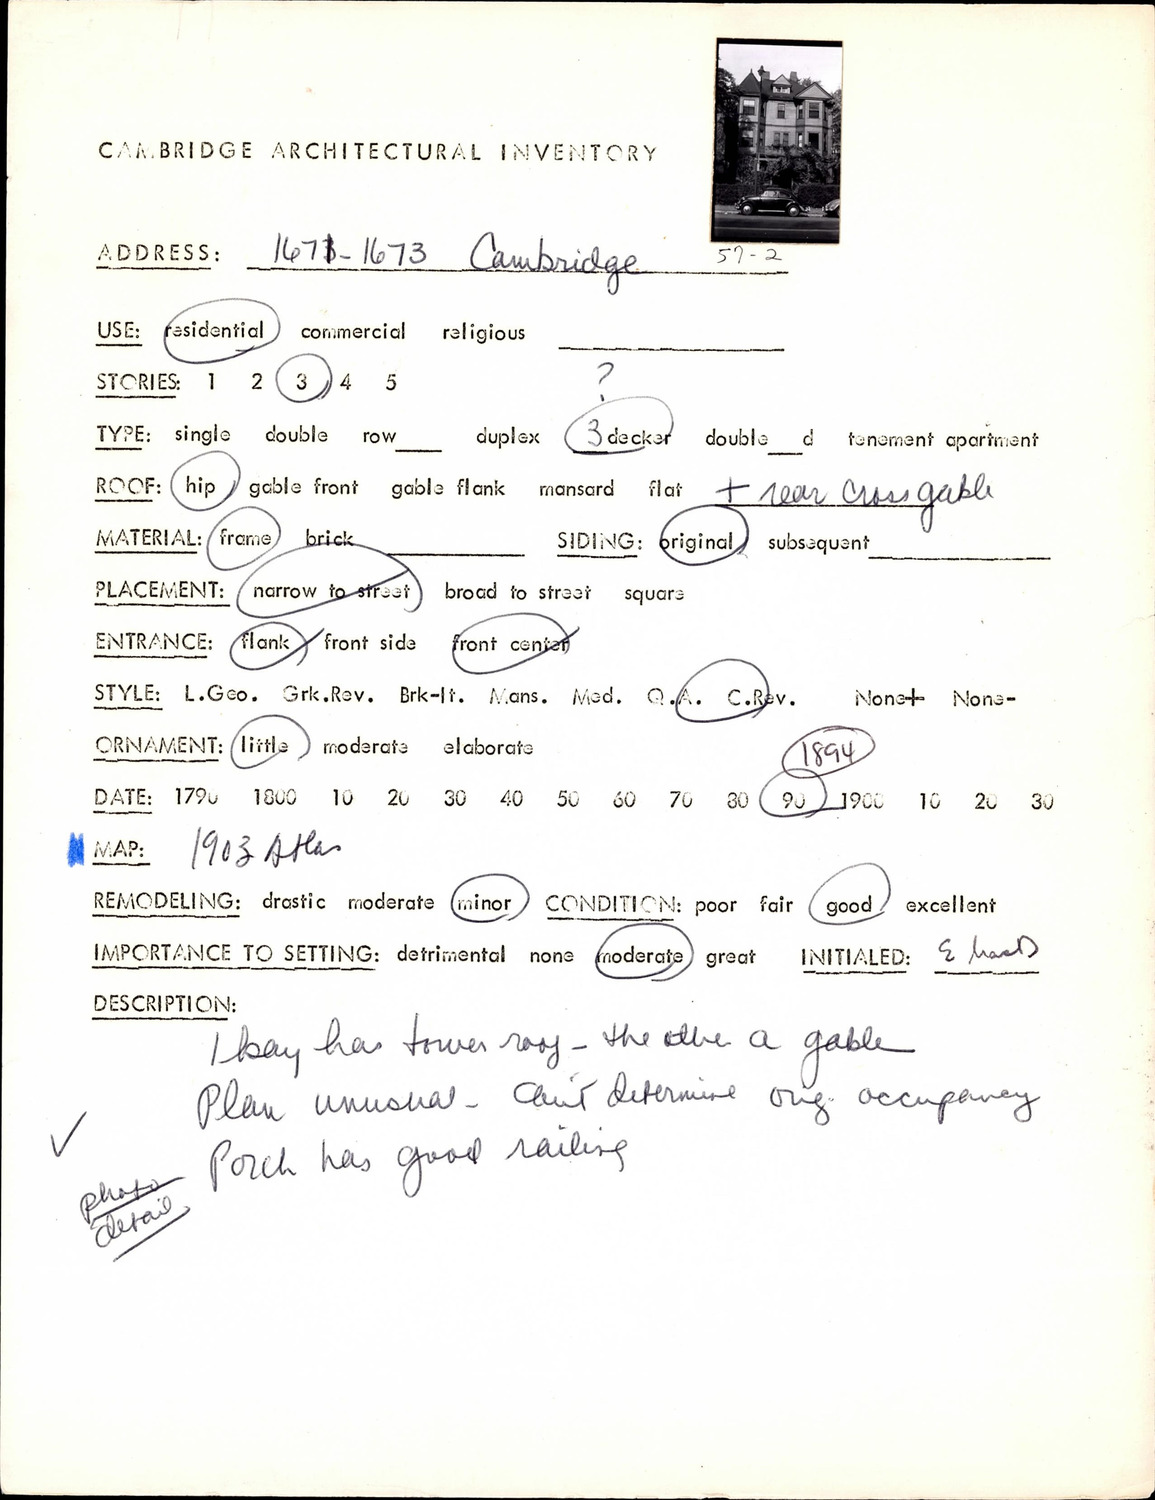 CAMBRIDGE ARCHITECTURAL INVENTORY
ADDRESS: 1671-1673 Cambridge 57-2
USE: residential commercial religious
STORIES: 1 2 3 4 5 ?
TYPE: single double row___ duplex 3 decker double___d tenement apartment
ROOF: hip gable front gable flank mansard flat + rear cross gable
MATERIAL: frame brick SIDING: original subsequent
PLACEMENT: narrow to street broad to street square
ENTRANCE: flank front side front center
STYLE: L.Geo. Grk.Rev. Brk-It. Mans. Med. Q.A. C.Rev. None+ None-
ORNAMENT: little moderate elaborate 1894
DATE: 1790 1800 10 20 30 40 50 60 70 80 90 1900 10 20 30
MAP: 1903 Atlas
REMODELING: drastic moderate minor CONDITION: poor fair good excellent
IMPORTANCE TO SETTING: detrimental none moderate great INITIALED: E
DESCRIPTION:
1 bay has tower roof - the other a gable
Plan unusual - Can't determine orig. occupancy
Porch has good railing
photo
detail